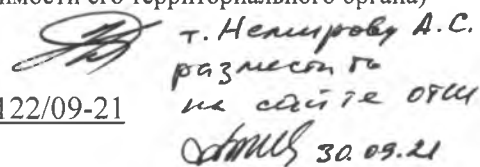 имости его территориального органа)
т. Немирову А.С.
разместить
на сайте
122/09-21
30.09.21